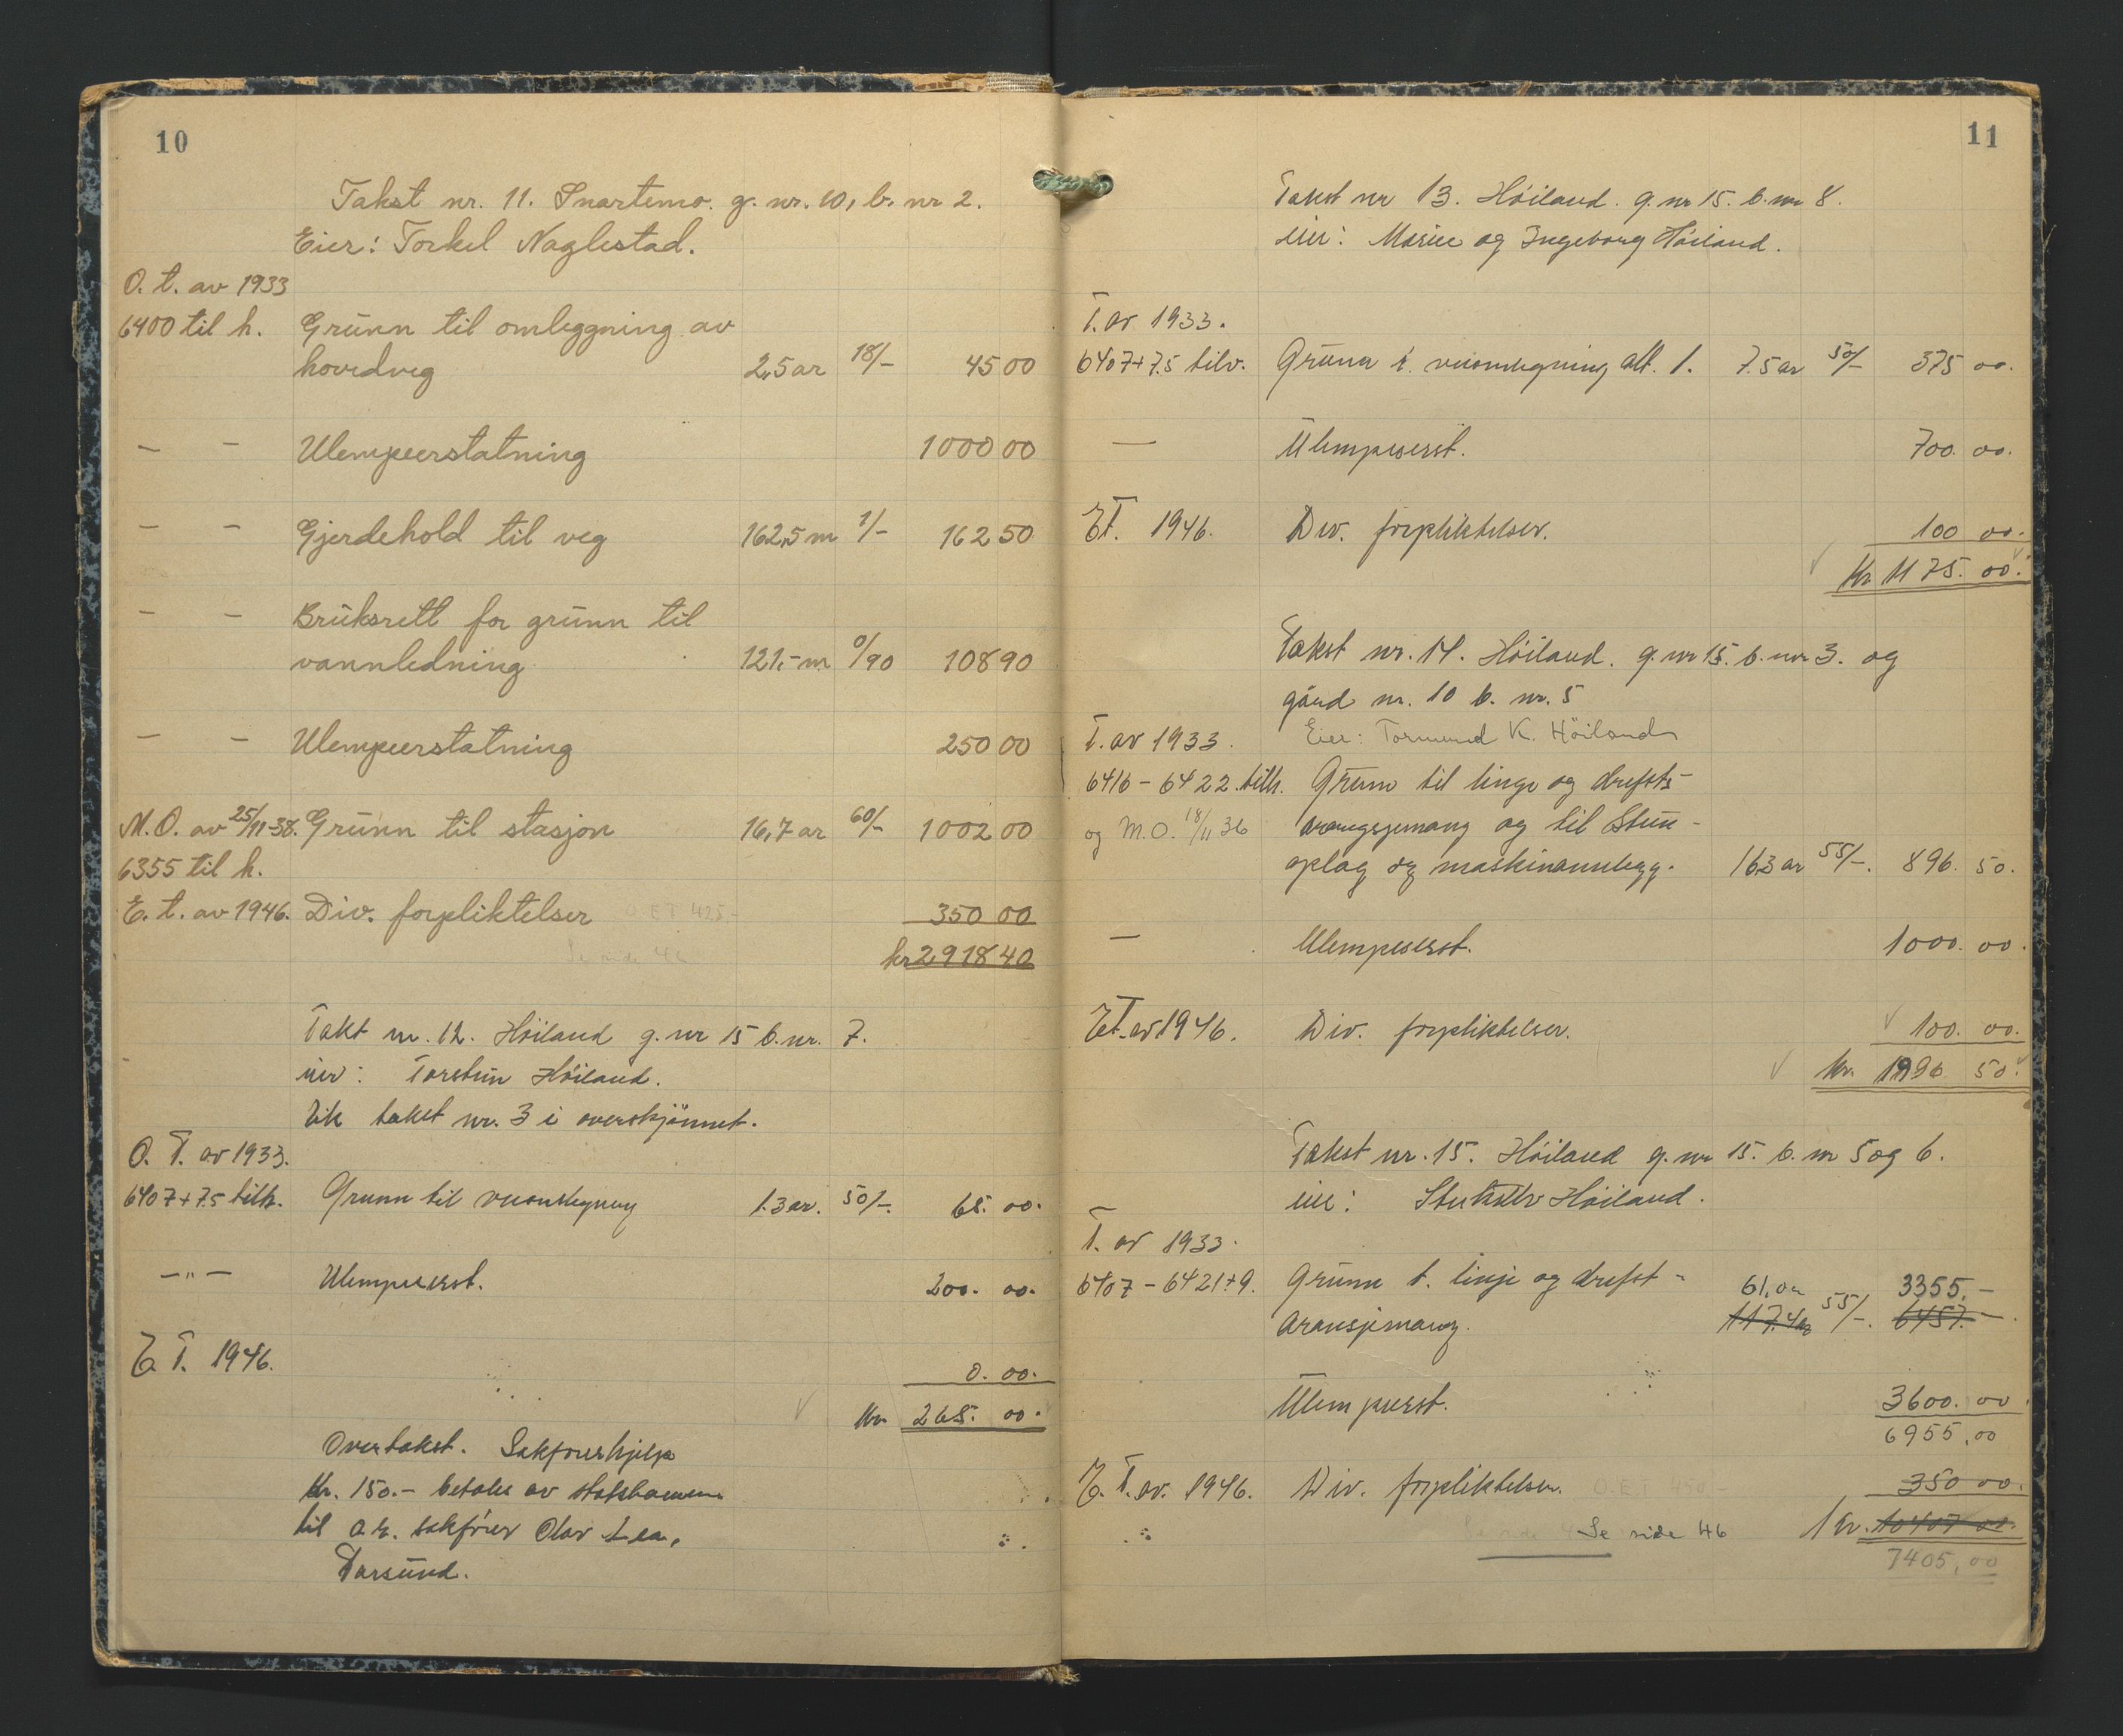 10
Takst nr. 11. Snartemo. g. nr. 10, b. nr 2.
Eier: Torkel Naglestad.
O. t. av 1933
6400 til h. Grunn til omleggning av
hovedveg 2,5 ar 18/- 45 00
- - Ulempeerstatning 1000 00
- - Gjerdehold til veg 162,5 m 1/- 162 50
- - Bruksrett for grunn til
vannledning 121,- m 0/90 108 90
- - Ulempeerstatning 250 00
M. O. av 25/11-38. Grunn til stasjon 16,7 ar 60/- 1002 00
6355 til h.
E. t. av 1946. Div. forpliktelser O.E.T 425,- 350 00
Se side 46 kr 2918 40
Takt nr. 12. Höiland g. nr 15 b. nr. 7.
eier: Torstein Höiland.
takst nr. 3 i overskjönnet.
O. T. av 1933.
6407+7.5 tilh. Grunn til veiomlegning 1.3 ar. 50/-. 65. 00.
-"- Ulempeserst. 200. 00.
E. T. 1946. 0. 00.
Kr. 265. 00.
Overtakst. Sakförerhjelp
Kr. 150.- betales av statsbanene
til o.r. sakförer Olav Lea,
Farsund.
11
Takst nr 13. Höiland. g. nr 15. b. nr 8.
eier: Marie og Ingeborg Höiland.
T. av 1933.
6407+7.5 tilv. Grunn t. veiomlegning alt. 1. 7.5 ar 50/- 375 00.
— Ulempeserst. 700. 00.
E.T. 1946. Div. forpliktelser. 100 00.
Kr 1175. 00.
Takst nr. 14. Höiland. g. nr 15. b. nr 3. og
gård nr. 10 b. nr. 5
T. av 1933. Eier: Tormund K. Höiland
6416 - 6422 tilh. Grunn til linje og drifts-
og M.O. 18/11 36 arangsjemang og til Sten-
oplag og maskinannlegg. 16.3 ar 55/-. 896. 50.
— Ulempeserst. 1000. 00.
E.T. av 1946. Div. forpliktelser. 100. 00.
Kr. 1996 50.
Takst nr. 15. Höiland g. nr 15. b. nr 5 og 6.
eier: Höiland.
T. av 1933.
6407 - 6421+9. Grunn t. linje og drifst- 61, ar 3355,-
aransjemang. 117.4 ar 55/-. 6457.-
Ulempeerst. 3600. 00
6955,00
E. T. av. 1946. Div. forpliktelser. O.E.T 450,- 350 00.
Se side 46 Kr. 10407 00.
7405,00